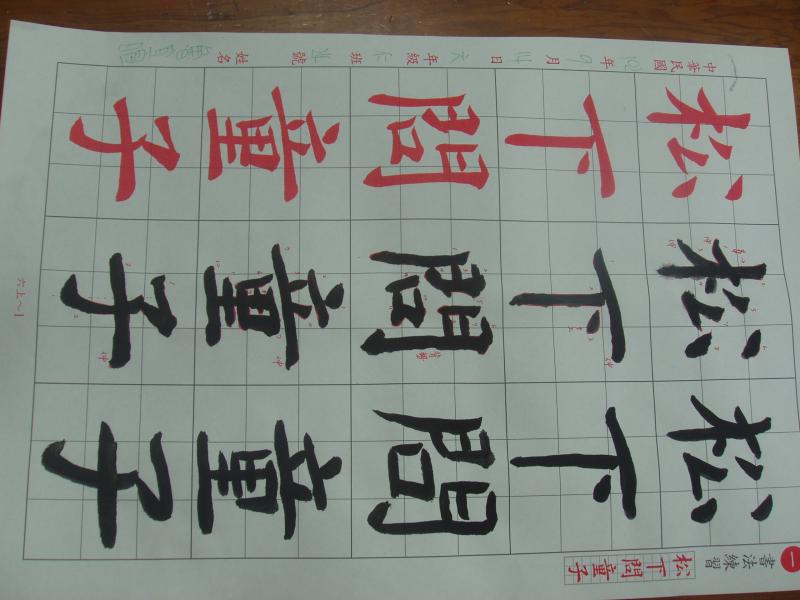 一 書法練習 松下問童子
松下問童子
松下問童子
松下問童子
中華民國 年9月 日六年級仁班 號 姓名
六上~1